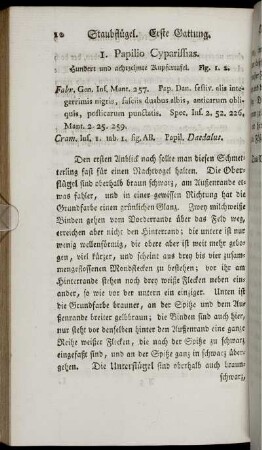 10 Staubflügel. Erste Gattung.
1. Papilio Cyparissias.
Hundert und achtzehnte Kupfertafel. Fig. 1. 2.
Fabr. Gen. Ins. Mant. 257. Pap. Dan. festiv. alis inte-
gerrimis nigris, fasciis duabus albis, anticarum obli-
quis, posticarum punctatis. Spec. Ins. 2. 52, 226,
Mant. 2. 25. 259.
Cram. Ins. 1. tab 1. fig. AB. Papil. Daedalus.
Den ersten Anblick nach sollte man diesen Schmet-
terling fast für einen Nachtvogel halten. Die Ober-
flügel sind oberhalb braun schwarz, am Außenrande et-
was fahler, und in einer gewissen Richtung hat die
Grundfarbe einen grünlichen Glanz. Zwey milchweiße
Binden gehen vom Vorderrande über das Feld weg,
erreichen aber nicht den Hinterrand; die untere ist nur
wenig wellenförmig, die obere aber ist weit mehr gebo-
gen, viel kürzer, und scheint aus drey bis vier zusam-
mengeflossenen Mondflecken zu bestehen; vor ihr am
Hinterrande stehen noch drey weiße Flecken neben einan-
der, so wie vor der untern ein einziger. Unten ist
die Grundfarbe brauner, an der Spitze und dem Au-
ßenrande breiter gelbbraun; die Binden sind auch hier,
nur steht vor denselben hinter dem Außenrand eine ganze
Reihe weißer Flecken, die nach der Spitze zu schwarz
eingefaßt sind, und an der Spitze ganz in schwarz über-
gehen. Die Unterflügel sind oberhalb auch braun-
schwarz,